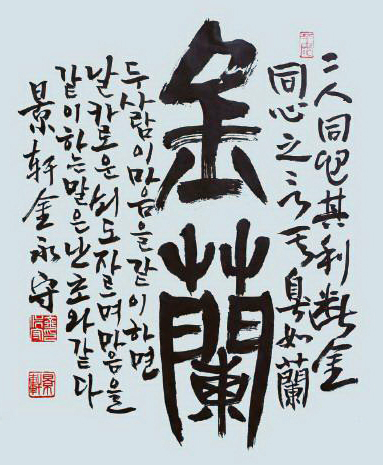 二人同心其利断金
同心之言其臭如蘭
金蘭
두 사람이 마음을 같이 하면
날카로운 쇠도 자르며 마음을
같이 하는 말은 난초와 같다
景軒 金永守